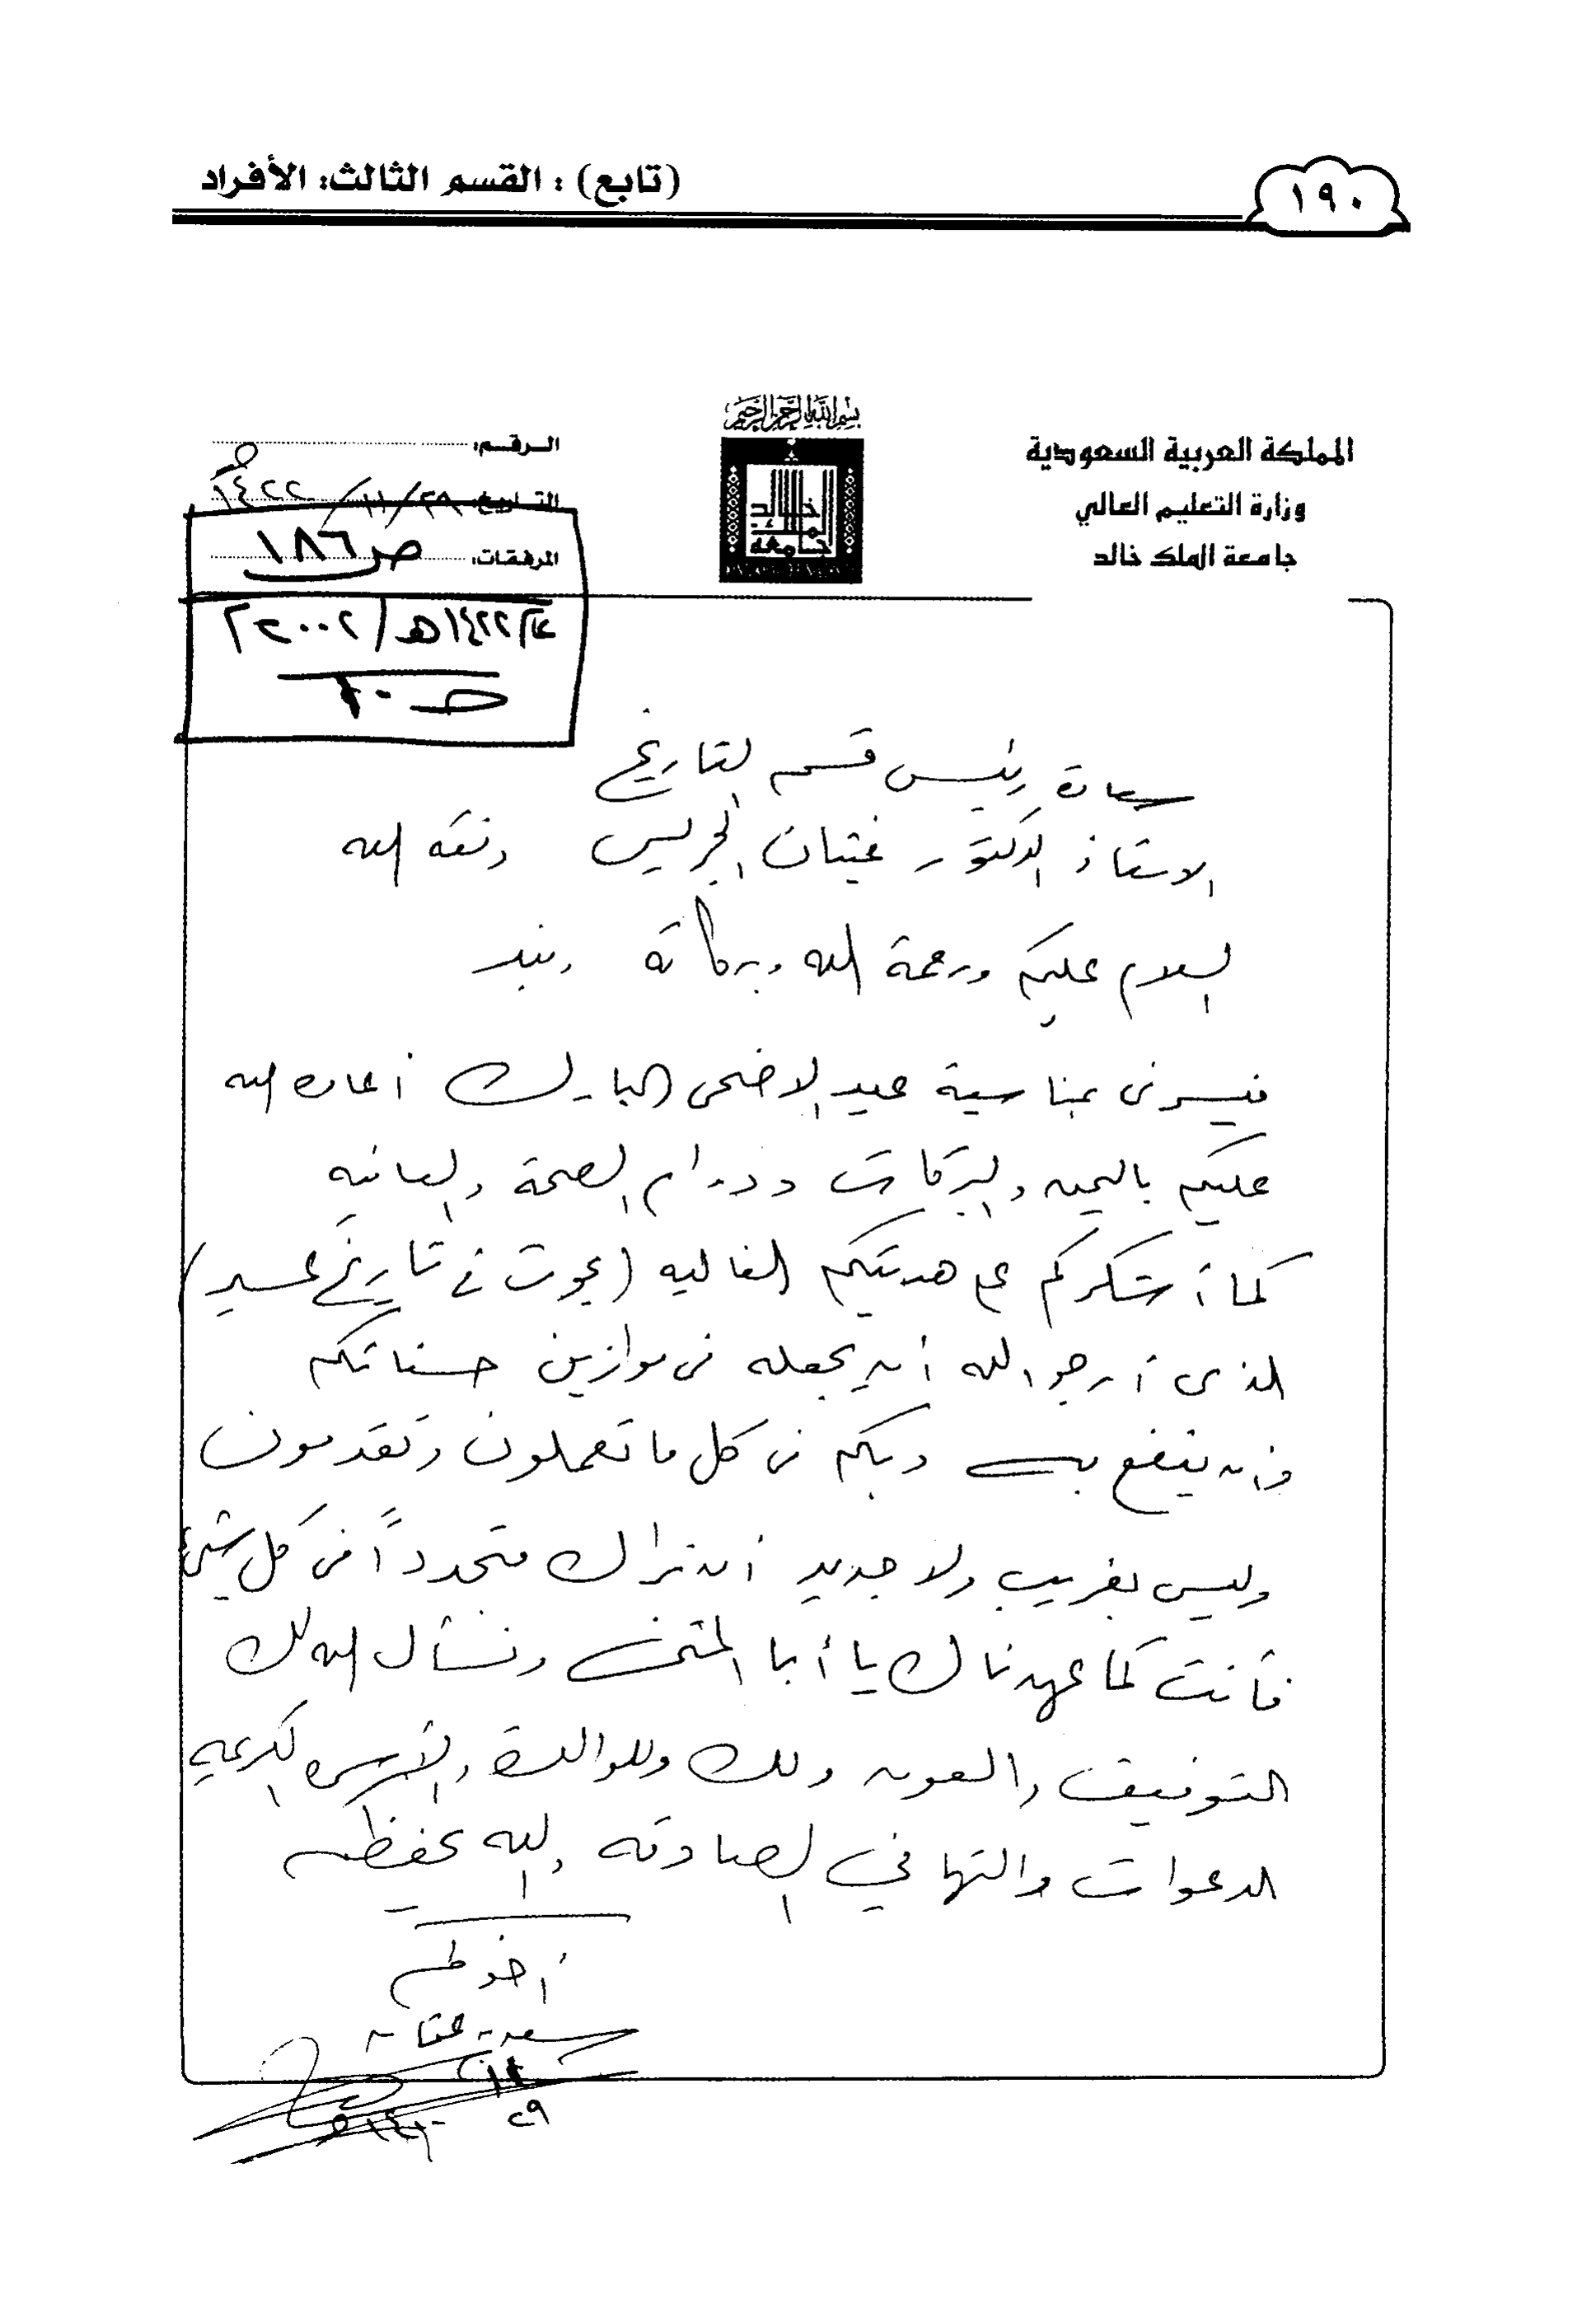 ١٩٠
(تابع) : القسم الثالث: الأفراد
بسم الله الرحمن الرحيم
المملكة العربية السعودية
وزارة التعليم العالي
جامعة الملك خالد
جامعة الملك خالد
الـرقـم:
التـاريخ: ٢٩/ ١١/ ١٤٢٢هـ
المرفقات:
ص ١٨٦
١٤٢٢هـ/ ٢٠٠٢م
سعادة رئيس قسم التاريخ
الاستاذ الدكتور غيثان الجريس وفقه الله
السلام عليكم ورحمة الله وبركاته وبعد
فيسرنى بمناسبة عيد الاضحى المبارك أعاده الله
عليكم باليمن والبركات ودوام الصحة والعافيه
كما أشكركم على هديتكم الغاليه (بحوث في تاريخ عسير)
الذى أرجو الله أن يجعله فى موازين حسناتكم
وأن ينفع به وبكم فى كل ما تعملون وتقدمون
وليس بغريب ولا جديد أن نراك متجدداً فى كل شيئ
فأنت كما عهدناك يا أبا المثنى ونسأل الله لك
التوفيق والعون ولك وللوالدة والأسره الكريمه
الدعوات والتهاني الصادقه والله يحفظكم
أخوكم
سعيد
٢٩